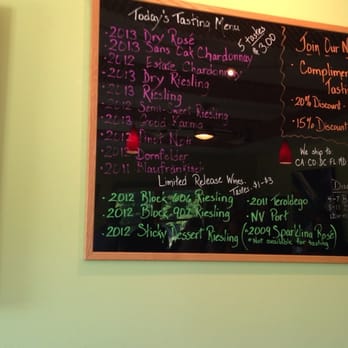 Today's Tasting Menu
5 tastes
$3.00
• 2013 Dry Rosé
• 2013 Sans Oak Chardonnay
• 2012 Estate Chardonnay
• 2013 Dry Riesling
• 2013 Riesling
• 2012 Semi-Sweet Riesling
• 2013 Good Karma
Pinot Noir
Dornfelder
• 2011 Blaufränkisch
Limited Release Wines
Tastes $1-$3
• 2012 Block 606 Riesling
• 2012 Block 907 Riesling
• 2012 Sticky Dessert Riesling
• 2011 Teroldego
• NV Port
• 2009 Sparkling Rosé
* Not available for tasting
Join Our
Complimen
Tastin
• 20% Discount
• 15% Discount
We ship to:
CA CO DC FL MD